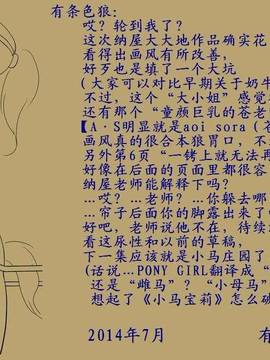 有条色狼：
哎？轮到我了？
这次纳屋大大地作品确实花
看得出画风有所改善，
好歹也是填了一个大坑
（大家可以对比早期关于奶牛
不过，这个“大小姐”感
还有那个“童颜巨乳的苍老
【A·S明显就是aoi sora（苍
画风真的很合本狼胃口，不
另外第6页“一铐上就无法再
好像在后面的页面里都很容
纳屋老师能解释下吗？
…哎？…老师？…你躲去哪
…帘子后面你的脚露出来了
好吧，老师说他不在，待续
看这尿性和以前的草稿，
下一集应该就是小马庄园了
（话说…PONY GIRL翻译成“
还是“雌马”？“小母马”
想起了《小马宝莉》怎么破
2014年7月
有